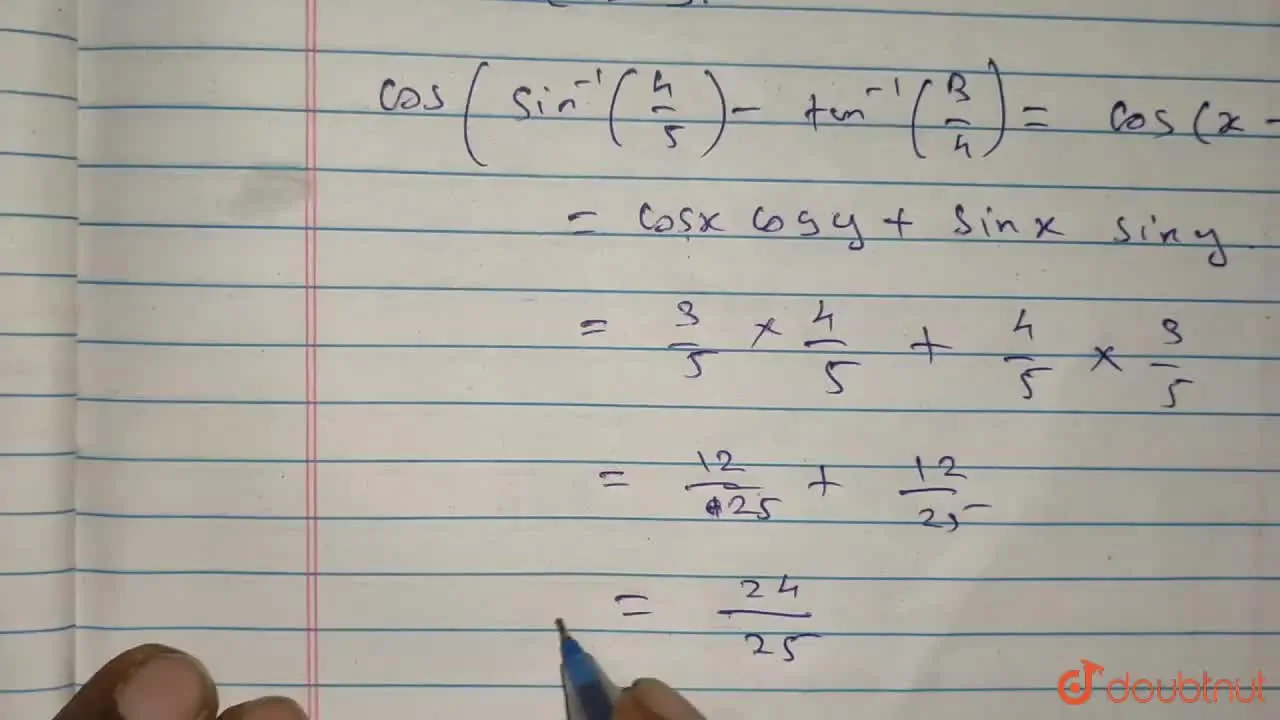 cos(sin⁻¹(4/5) - tan⁻¹(3/4)) = cos(x -
= cosx cosy + sinx siny
= 3/5 × 4/5 + 4/5 × 3/5
= 12/25 + 12/25
= 24/25
doubtnut